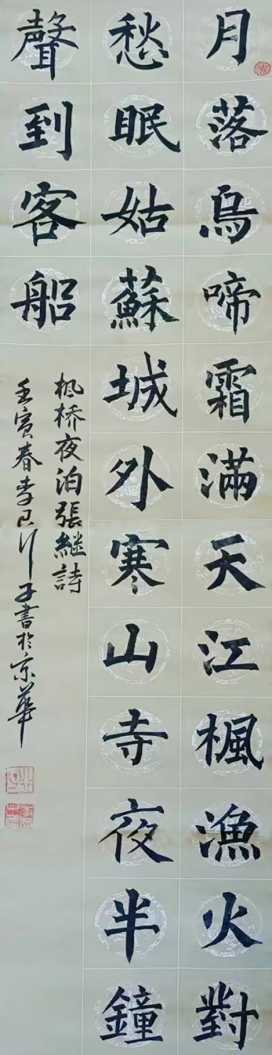 月落烏啼霜滿天江楓漁火對
愁眠姑蘇城外寒山寺夜半鐘
聲到客船
楓橋夜泊張繼詩
壬寅春李
書於京華